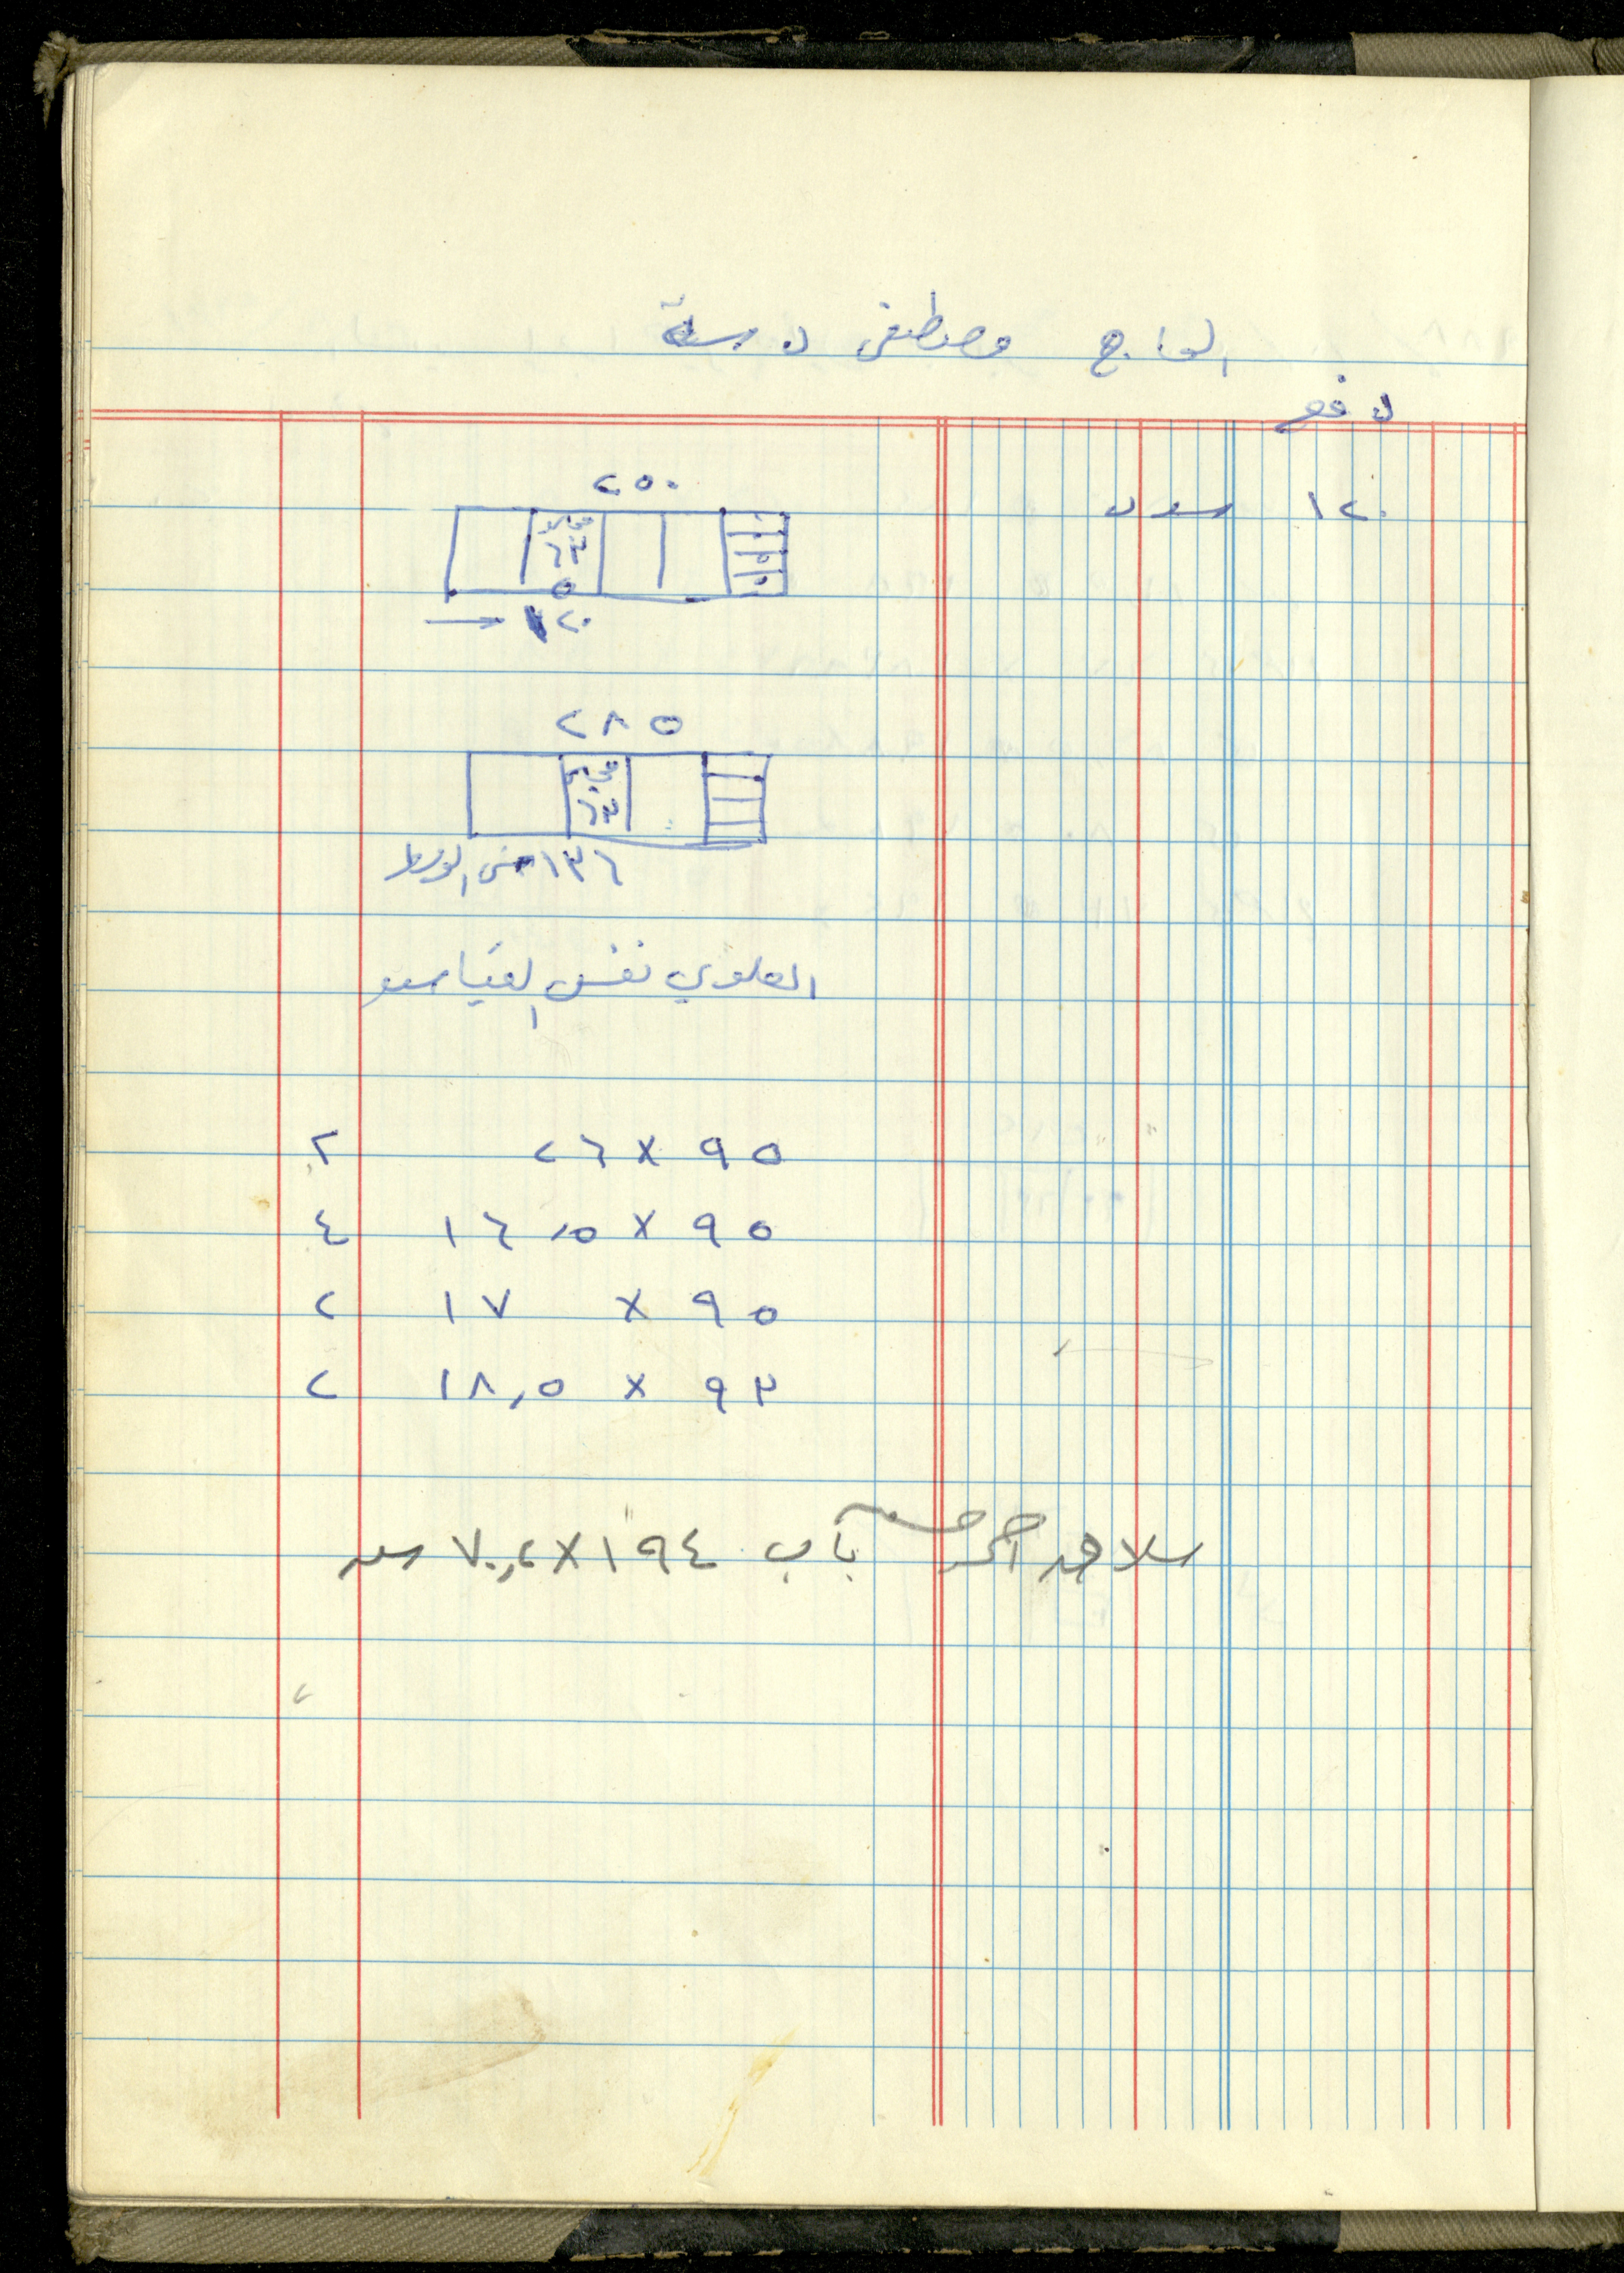 الحاج مصطفى درسة
دفع
١٢٠
٢٥٠
مجلى
٦٣
١٢٠
٢٨٥
مجلى
٦٣
١٣٦ من الوسط
العلوي نفس القياس
٩٥ × ٢٦ ٢
٩٥ × ١٦,٥ ٤
٩٥ × ١٧ ٢
٩٣ × ١٨,٥ ٢
احمر باب ١٩٤ × ٧٠,٢